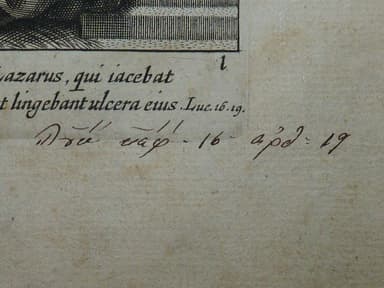 1
Lazarus, qui iacebat
t lingebant ulcera eius. Luc. 16. 19.
κεφ - 16 - ἀρθ - 19